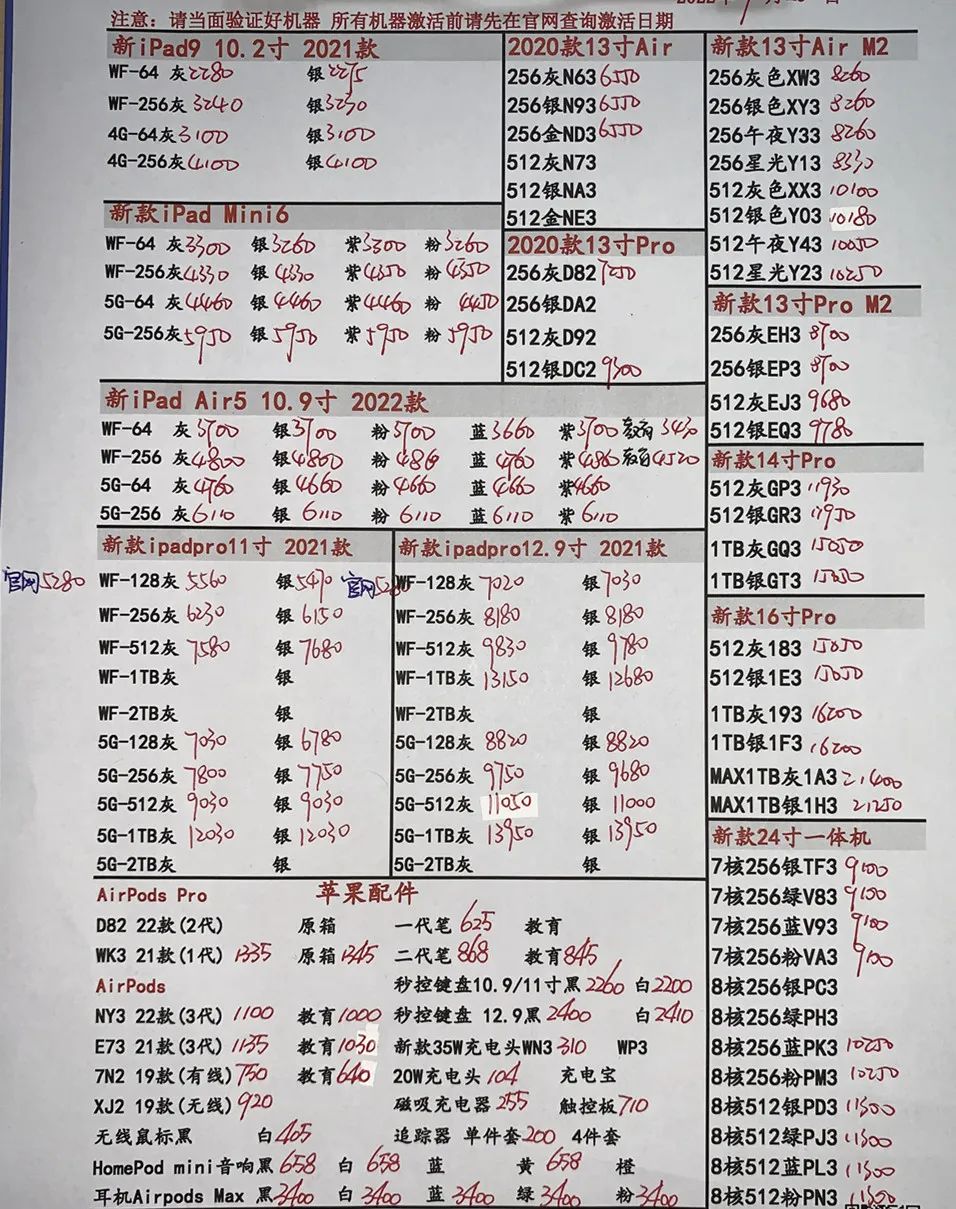 注意: 请当面验证好机器 所有机器激活前请先在官网查询激活日期
新iPad9 10.2寸 2021款
WF-64 灰2280 银2275
WF-256灰3240 银3230
4G-64灰3100 银3100
4G-256灰4100 银4100
新款iPad Mini6
WF-64 灰3300 银3260 紫3300 粉3260
WF-256灰4330 银4330 紫4350 粉4350
5G-64 灰4460 银4460 紫4460 粉4450
5G-256灰5950 银5950 紫5950 粉5950
2020款13寸Air
256灰N63 6550
256银N93 6550
256金ND3 6550
512灰N73
512银NA3
512金NE3
2020款13寸Pro
256灰D82 7250
256银DA2
512灰D92
512银DC2 9300
新款13寸Air M2
256灰色XW3 8260
256银色XY3 8260
256午夜Y33 8260
256星光Y13 8330
512灰色XX3 10100
512银色Y03 10180
512午夜Y43 10050
512星光Y23 10250
新款13寸Pro M2
256灰EH3 8700
256银EP3 8700
512灰EJ3 9680
512银EQ3 9780
新款14寸Pro
512灰GP3 11930
512银GR3 11950
1TB灰GQ3 15050
1TB银GT3
新款16寸Pro
512灰183
512银1E3
1TB灰193 16200
1TB银1F3 16200
MAX1TB灰1A3 21400
MAX1TB银1H3 21250
新iPad Air5 10.9寸 2022款
WF-64 灰3700 银3700 粉3700 蓝3660 紫3700 教育3430
WF-256 灰4800 银4800 粉 蓝4760 紫4860 教育4520
5G-64 灰4760 银4660 粉4660 蓝4660 紫4660
5G-256 灰6110 银6110 粉6110 蓝6110 紫6110
新款ipadpro11寸 2021款
官网5280 WF-128灰 5560 银5470
WF-256灰 6230 银 6150
WF-512灰 7580 银 7680
WF-1TB灰 银
WF-2TB灰 银
5G-128灰 7030 银 6780
5G-256灰 7800 银 7750
5G-512灰 9030 银 9030
5G-1TB灰 12030 银 12030
5G-2TB灰 银
新款ipadpro12.9寸 2021款
官网 WF-128灰 7020 银 7030
WF-256灰 8180 银 8180
WF-512灰 9830 银 9780
WF-1TB灰 13150 银 12680
WF-2TB灰 银
5G-128灰 8820 银 8820
5G-256灰 9750 银 9680
5G-512灰 11050 银 11000
5G-1TB灰 13950 银 13950
5G-2TB灰 银
新款24寸一体机
7核256银TF3 9100
7核256绿V83 9100
7核256蓝V93 9100
7核256粉VA3 9100
8核256银PC3
8核256绿PH3
8核256蓝PK3 10250
8核256粉PM3 10250
8核512银PD3 11500
8核512绿PJ3 11500
8核512蓝PL3 11500
8核512粉PN3
AirPods Pro 苹果配件
D82 22款(2代) 原箱 一代笔 625 教育
WK3 21款(1代) 1335 原箱 1345 二代笔 868 教育845
AirPods 秒控键盘10.9/11寸黑2260 白2200
NY3 22款(3代) 1100 教育1000 秒控键盘 12.9黑2400 白2410
E73 21款(3代) 1135 教育1030 新款35W充电头WN3 310 WP3
7N2 19款(有线) 750 教育640 20W充电头 104 充电宝
XJ2 19款(无线) 920 磁吸充电器 255 触控板710
无线鼠标黑 白405 追踪器 单件套200 4件套
HomePod mini音响黑658 白 658 蓝 黄 658 橙
耳机Airpods Max 黑3400 白 3400 蓝 3400 绿 3400 粉3400